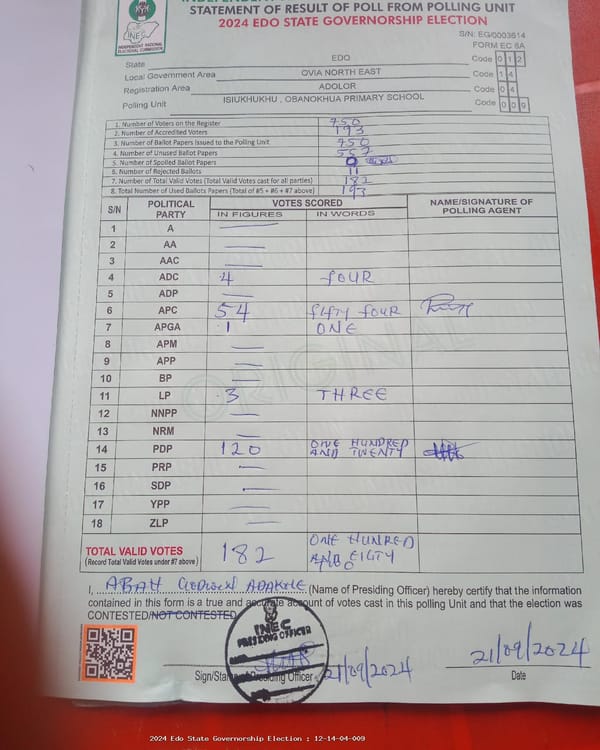 STATEMENT OF RESULT OF POLL FROM POLLING UNIT
2024 EDO STATE GOVERNORSHIP ELECTION
INEC
INDEPENDENT NATIONAL ELECTORAL COMMISSION
S/N: EG/0003614
FORM EC 8A
State EDO Code 0 1 2
Local Government Area OVIA NORTH EAST Code 1 4
Registration Area ADOLOR Code 0 4
Polling Unit ISIUKHUKHU , OBANOKHUA PRIMARY SCHOOL Code 0 0 9
1. Number of Voters on the Register 750
2. Number of Accredited Voters 193
3. Number of Ballot Papers Issued to the Polling Unit 750
4. Number of Unused Ballot Papers 557
5. Number of Spoiled Ballot Papers 0
6. Number of Rejected Ballots 11
7. Number of Total Valid Votes (Total Valid Votes cast for all parties) 182
8. Total Number of Used Ballots Papers (Total of #5 + #6 + #7 above) 193
S/N POLITICAL PARTY VOTES SCORED NAME/SIGNATURE OF POLLING AGENT
IN FIGURES IN WORDS
1 A —
2 AA —
3 AAC —
4 ADC 4 FOUR
5 ADP —
6 APC 54 FIFTY FOUR
7 APGA 1 ONE
8 APM —
9 APP —
10 BP —
11 LP 3 THREE
12 NNPP —
13 NRM —
14 PDP 120 ONE HUNDRED AND TWENTY
15 PRP —
16 SDP —
17 YPP —
18 ZLP —
ORIGINAL
TOTAL VALID VOTES 182 ONE HUNDRED
(Record Total Valid Votes under #7 above) AND EIGTY TWO
I, ABAH GODWIN (Name of Presiding Officer) hereby certify that the information
contained in this form is a true and accurate account of votes cast in this polling Unit and that the election was
CONTESTED/NOT CONTESTED
INEC
PRESIDING OFFICER
21/09/2024 21/09/2024
Sign/Stamp Presiding Officer Date
2024 Edo State Governorship Election : 12-14-04-009